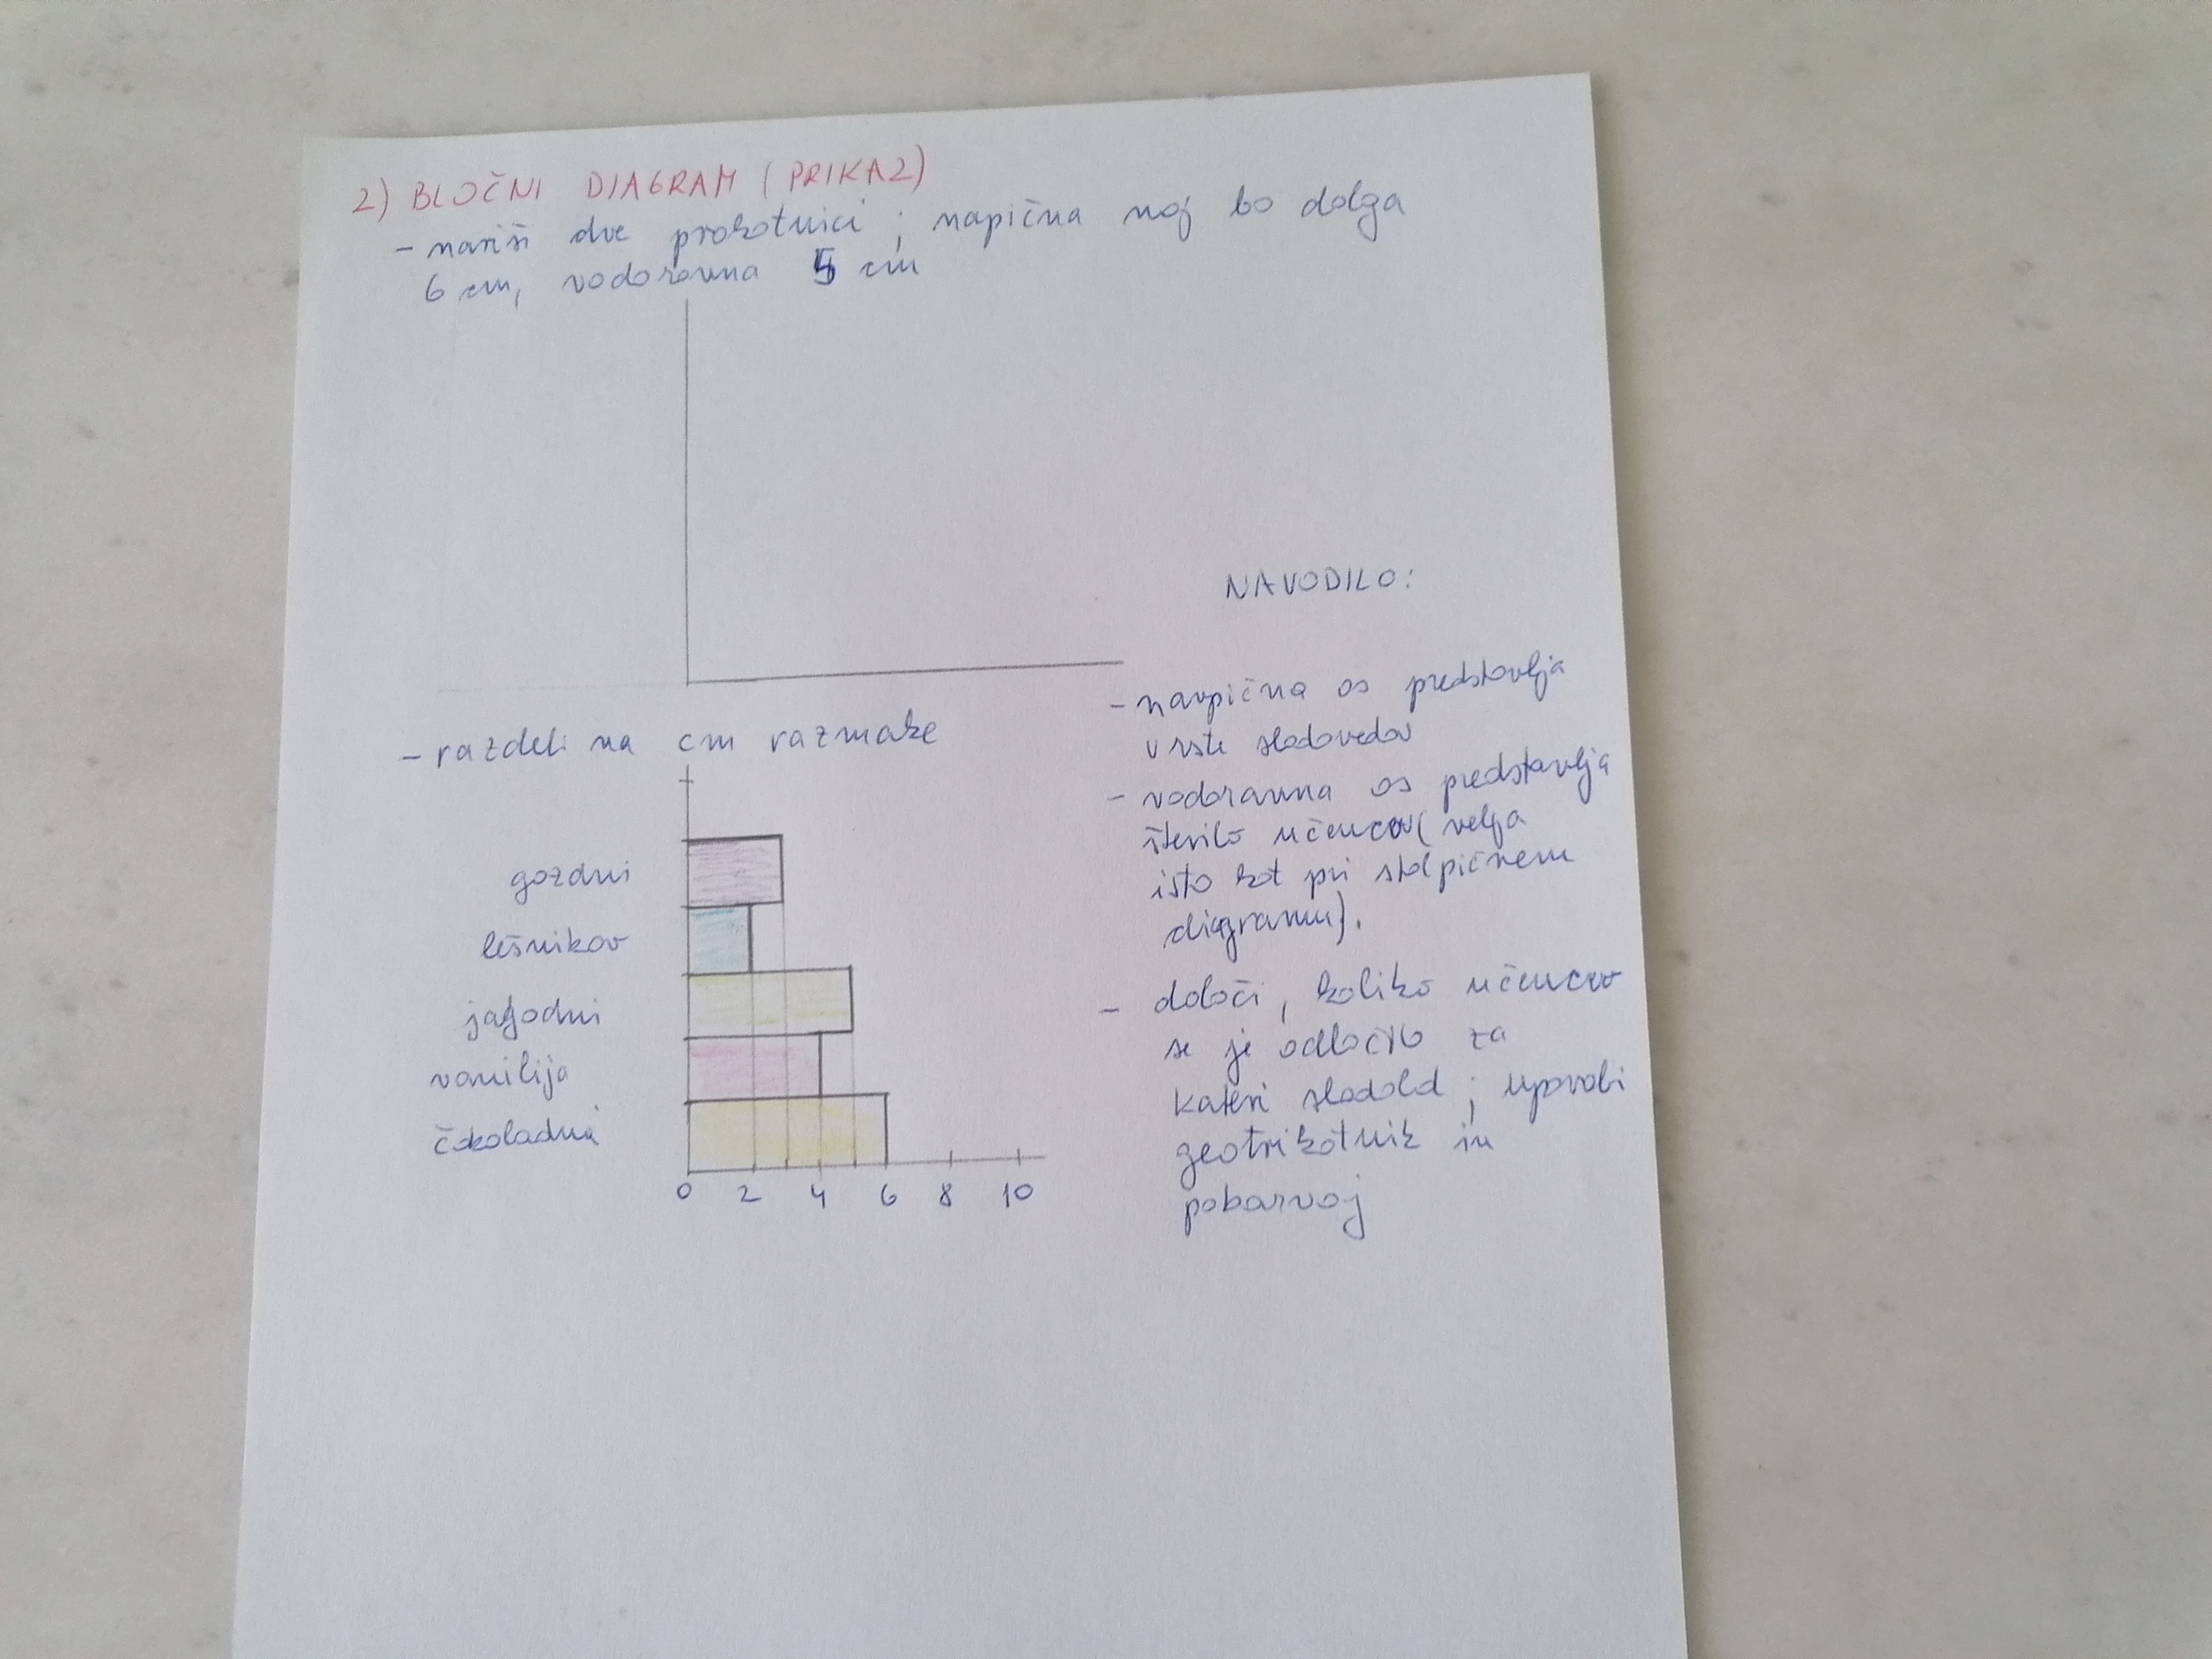 2) BLOČNI DIAGRAM (PRIKAZ)
- nariši dve pravokotnici; napična naj bo dolga
6 cm, vodoravna 5 cm
NAVODILO:
- navpična os predstavlja
vrste sladoledov
- vodoravna os predstavlja
število učencev (velja
isto kot pri stolpičnem
diagramu).
- določi, koliko učencev
se je odločilo za
kateri sladoled; uporabi
geotrikotnik in
pobarvaj
- razdeli na cm razmake
gozdni
lešnikov
jagodni
vanilija
čokoladni
0 2 4 6 8 10